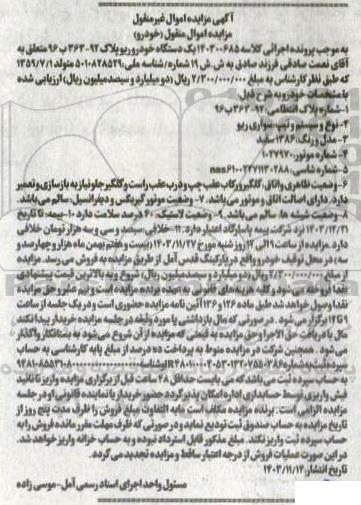 آگهی مزایده اموال غیرمنقول
مزایده اموال منقول (خودرو)
به موجب پرونده اجرائی کلاسه ۱۴۰۳۰۰۶۸۵ یک دستگاه خودرو ریو پلاک ۹۲-۳۶۳ب۹۶ متعلق به
آقای نعمت صادقی فرزند صادق به ش.ش ۱۹ شماره/شناسه ملی: متولد ۱۳۵۹/۷/۱
که طبق نظر کارشناس به مبلغ ۲/۳۰۰/۰۰۰/۰۰۰ ریال (دو میلیارد و سیصد میلیون ریال) ارزیابی شده
با مشخصات خودرو به شرح ذیل:
۱- شماره پلاک انتظامی: ۹۲-۳۶۳ب۹۶
۲- نوع و سیستم و تیپ: سواری ریو
۳- مدل و رنگ: ۱۳۸۶ سفید
۴- شماره موتور:
۵- شماره شاسی:
۶- وضعیت ظاهری و اتاق: گلگیر و رکاب عقب چپ و درب عقب راست و گلگیر جلو نیاز به بازسازی و تعمیر
دارد. دارای اصالت اتاق و موتور می باشد. ۷- وضعیت موتور گیربکس و دیفرانسیل: سالم می باشد.
۸- وضعیت شیشه ها: سالم می باشد. ۹- وضعیت لاستیک: ۶۰ درصد سلامت دارد ۱۰- بیمه: تا تاریخ
۱۴۰۳/۱۲/۲۱ نزد شرکت بیمه پاسارگاد اعتبار دارد. ۱۱- خلافی: سیصد و سی و سه هزار تومان خلافی
دارد. مزایده از ساعت ۹ الی ۱۲ روز شنبه مورخ ۱۴۰۳/۱۱/۲۷ (بیست و هفتم بهمن ماه هزار و چهارصد و
سه) در محل توقیف خودرو واقع در پارکینگ قدس آمل از طریق مزایده به فروش می رسد. مزایده
از مبلغ ۲/۳۰۰/۰۰۰/۰۰۰ ریال (دو میلیارد و سیصد میلیون ریال) شروع و به بالاترین قیمت پیشنهادی
نقدا فروخته می شود و کلیه هزینه های قانونی به عهده برنده مزایده است و نیم عشر و حق مزایده
نقدا وصول خواهد شد طبق ماده ۱۲۶ و ۱۳۶ آئین نامه مزایده حضوری است و در یک جلسه از ساعت
۹ تا ۱۲ برگزار می شود. در صورتی که مال بازداشتی یا مورد وثیقه در جلسه مزایده خریدار پیدا نکند
مال با دریافت حق الاجرا و حق مزایده به قیمتی که مزایده از آن شروع می شود به بستانکار واگذار
می شود. همچنین شرکت در مزایده منوط به پرداخت ده درصد از مبلغ پایه کارشناسی به حساب
سپرده ثبت به شماره
به حساب سپرده ثبت می باشد که می بایست حداقل ۴۸ ساعت قبل از برگزاری مزایده واریز تا تائید
فیش واریزی توسط حسابداری اداره امکان پذیر گردد حضور خریدار یا نماینده قانونی او در جلسه
مزایده الزامی است. برنده مزایده مکلف است مابه التفاوت مبلغ فروش را ظرف مدت پنج روز از
تاریخ مزایده به حساب صندوق ثبت تودیع نماید و در صورتی که ظرف مهلت مقرر مانده فروش را به
حساب سپرده ثبت واریز نکند. مبلغ مذکور قابل استرداد نبوده و به حساب خزانه واریز خواهد شد.
در این صورت عملیات فروش از درجه اعتبار ساقط و مزایده تجدید می گردد.
تاریخ انتشار: ۱۴۰۳/۱۱/۱۴
مسئول واحد اجرای اسناد رسمی آمل-موسی زاده